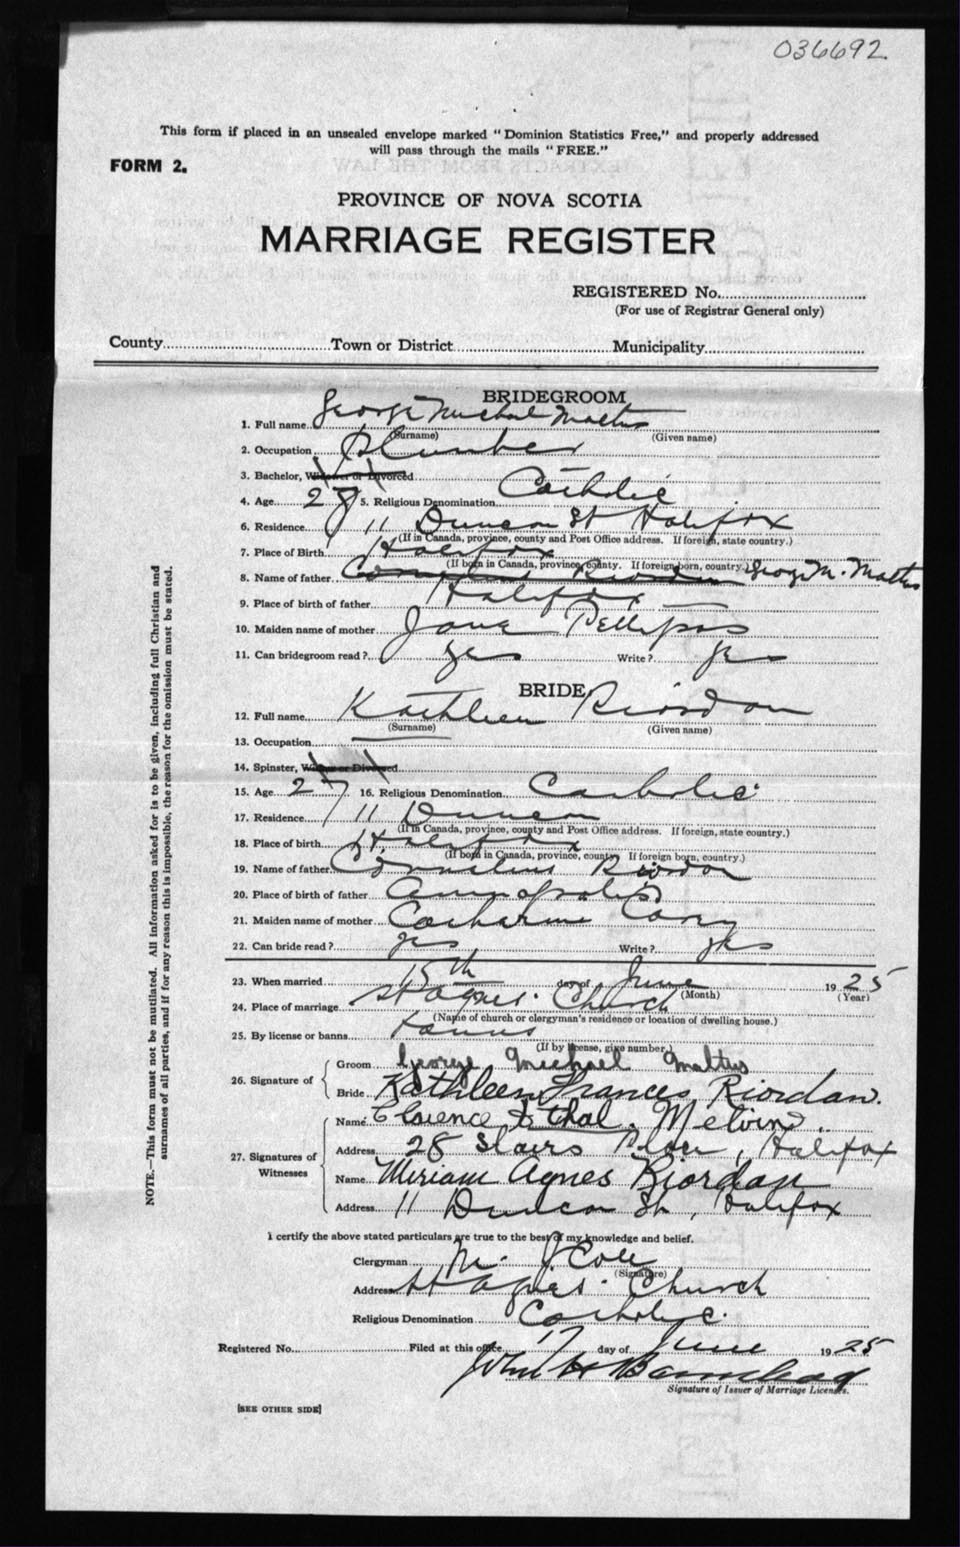 036692
This form if placed in an unsealed envelope marked "Dominion Statistics Free," and properly addressed
will pass through the mails "FREE."
FORM 2.
PROVINCE OF NOVA SCOTIA
MARRIAGE REGISTER
REGISTERED No.
(For use of Registrar General only)
County Town or District Municipality
BRIDEGROOM
1. Full name George Michael
(Surname) (Given name)
2. Occupation Plumber
3. Bachelor, Widower or Divorced
4. Age 28 5. Religious Denomination Catholic
6. Residence 11 Duncan St Halifax
(If in Canada, province, county and Post Office address. If foreign, state country.)
7. Place of Birth Halifax
(If born in Canada, province, county. If foreign born, country.)
8. Name of father Cornelius Riordan George M.
9. Place of birth of father Halifax
10. Maiden name of mother Jane
11. Can bridegroom read? yes Write? yes
BRIDE
12. Full name Kathleen Riordan
(Surname) (Given name)
13. Occupation
14. Spinster, Widow or Divorced
15. Age 27 16. Religious Denomination Catholic
17. Residence 11 Duncan
(If in Canada, province, county and Post Office address. If foreign, state country.)
18. Place of birth Halifax
(If born in Canada, province, county If foreign born, country.)
19. Name of father Cornelius Riordan
20. Place of birth of father Annapolis
21. Maiden name of mother Catharine
22. Can bride read? yes Write? yes
23. When married 15th day of June 1925
(Month) (Year)
24. Place of marriage St Agnes Church
(Name of church or clergyman's residence or location of dwelling house.)
25. By license or banns Banns
(If by license, give number.)
26. Signature of
Groom George Michael
Bride Kathleen Frances Riordan.
27. Signatures of Witnesses
Name Clarence Melvin
Address 28 Stairs Place, Halifax
Name Miriam Agnes Riordan
Address 11 Duncan St, Halifax
I certify the above stated particulars are true to the best of my knowledge and belief.
Clergyman
(Signature)
Address St Agnes Church
Religious Denomination Catholic
Registered No. Filed at this office 17 day of June 1925
John H Barnstead
Signature of Issuer of Marriage Licenses.
[SEE OTHER SIDE]
NOTE.—This form must not be mutilated. All information asked for is to be given, including full Christian and
surnames of all parties, and if for any reason this is impossible, the reason for the omission must be stated.